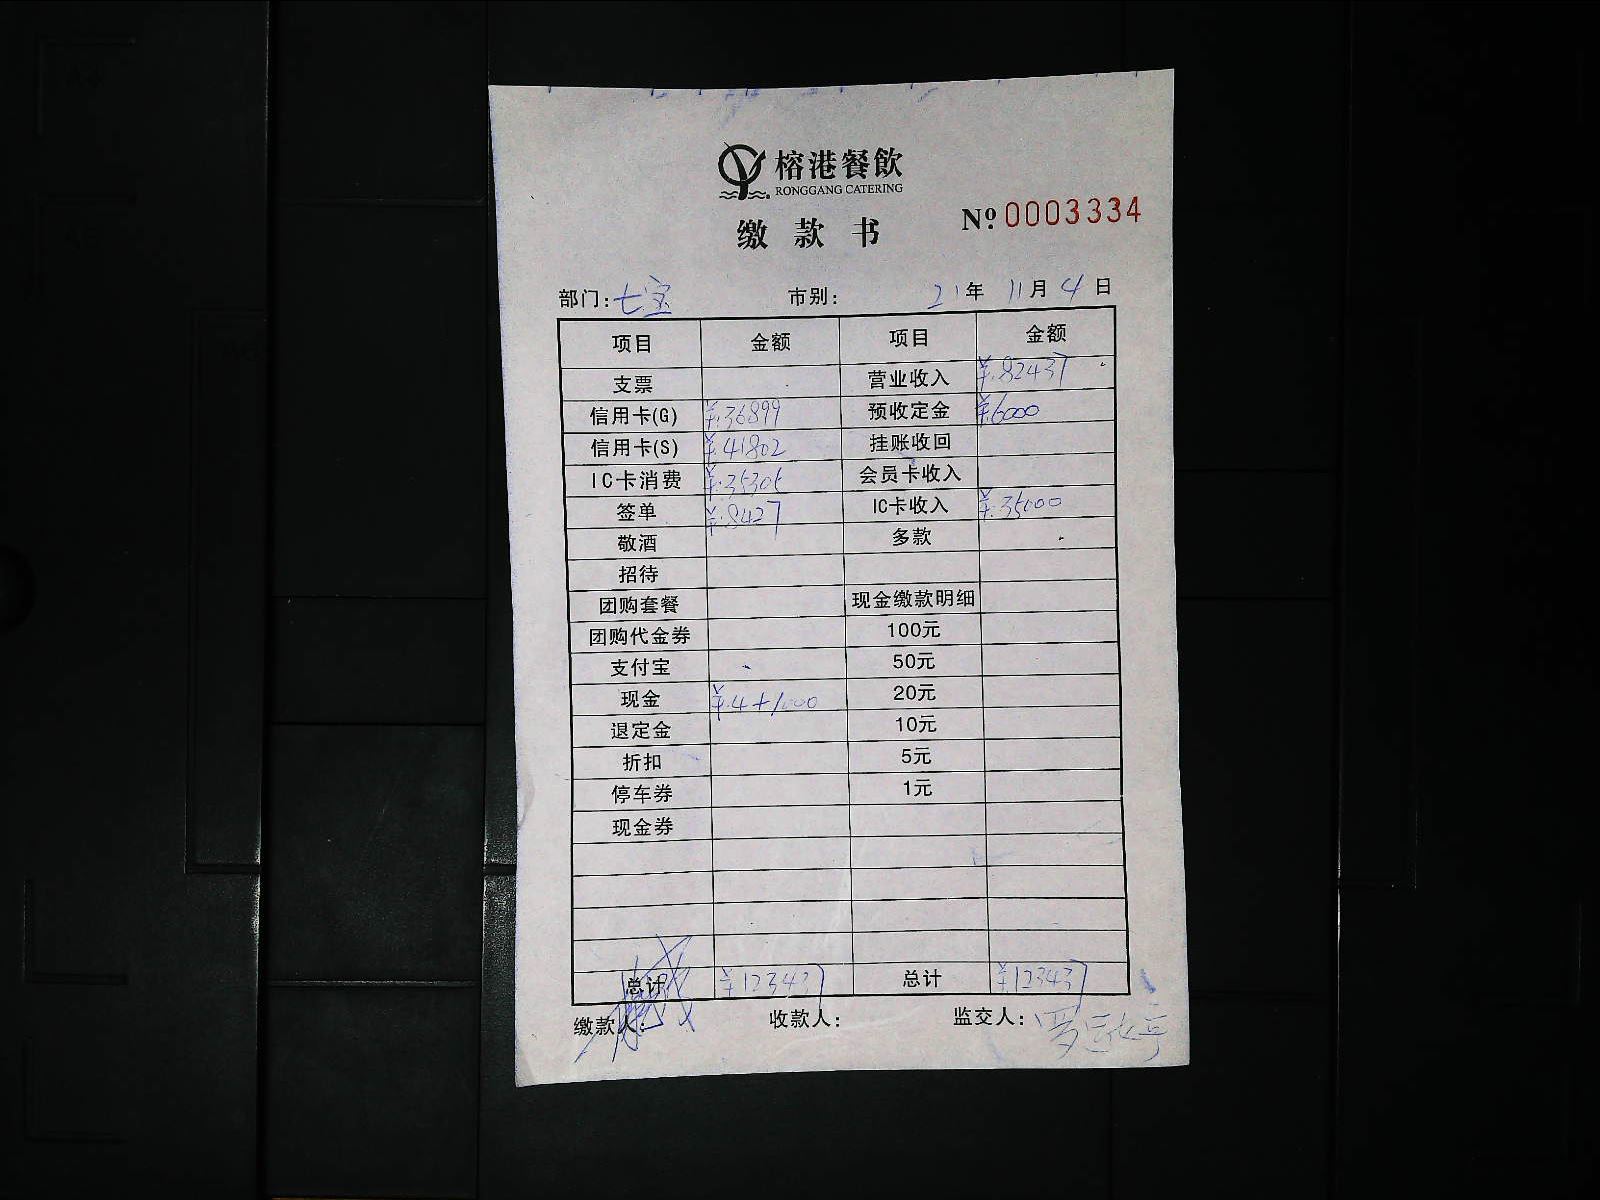 榕港餐飲
RONGGANG CATERING
缴款书
№ 0003334
部门: 七宝 市别: 21年 11月 4日
项目 金额 项目 金额
支票 营业收入 ¥82437
信用卡(G) ¥36899 预收定金 ¥6000
信用卡(S) ¥41802 挂账收回
IC卡消费 ¥35305 会员卡收入
签单 ¥8427 IC卡收入 ¥35000
敬酒 多款
招待
团购套餐 现金缴款明细
团购代金券 100元
支付宝 50元
现金 ¥4+1000 20元
退定金 10元
折扣 5元
停车券 1元
现金券
总计 ¥123437 总计 ¥123437
缴款人: 收款人: 监交人: